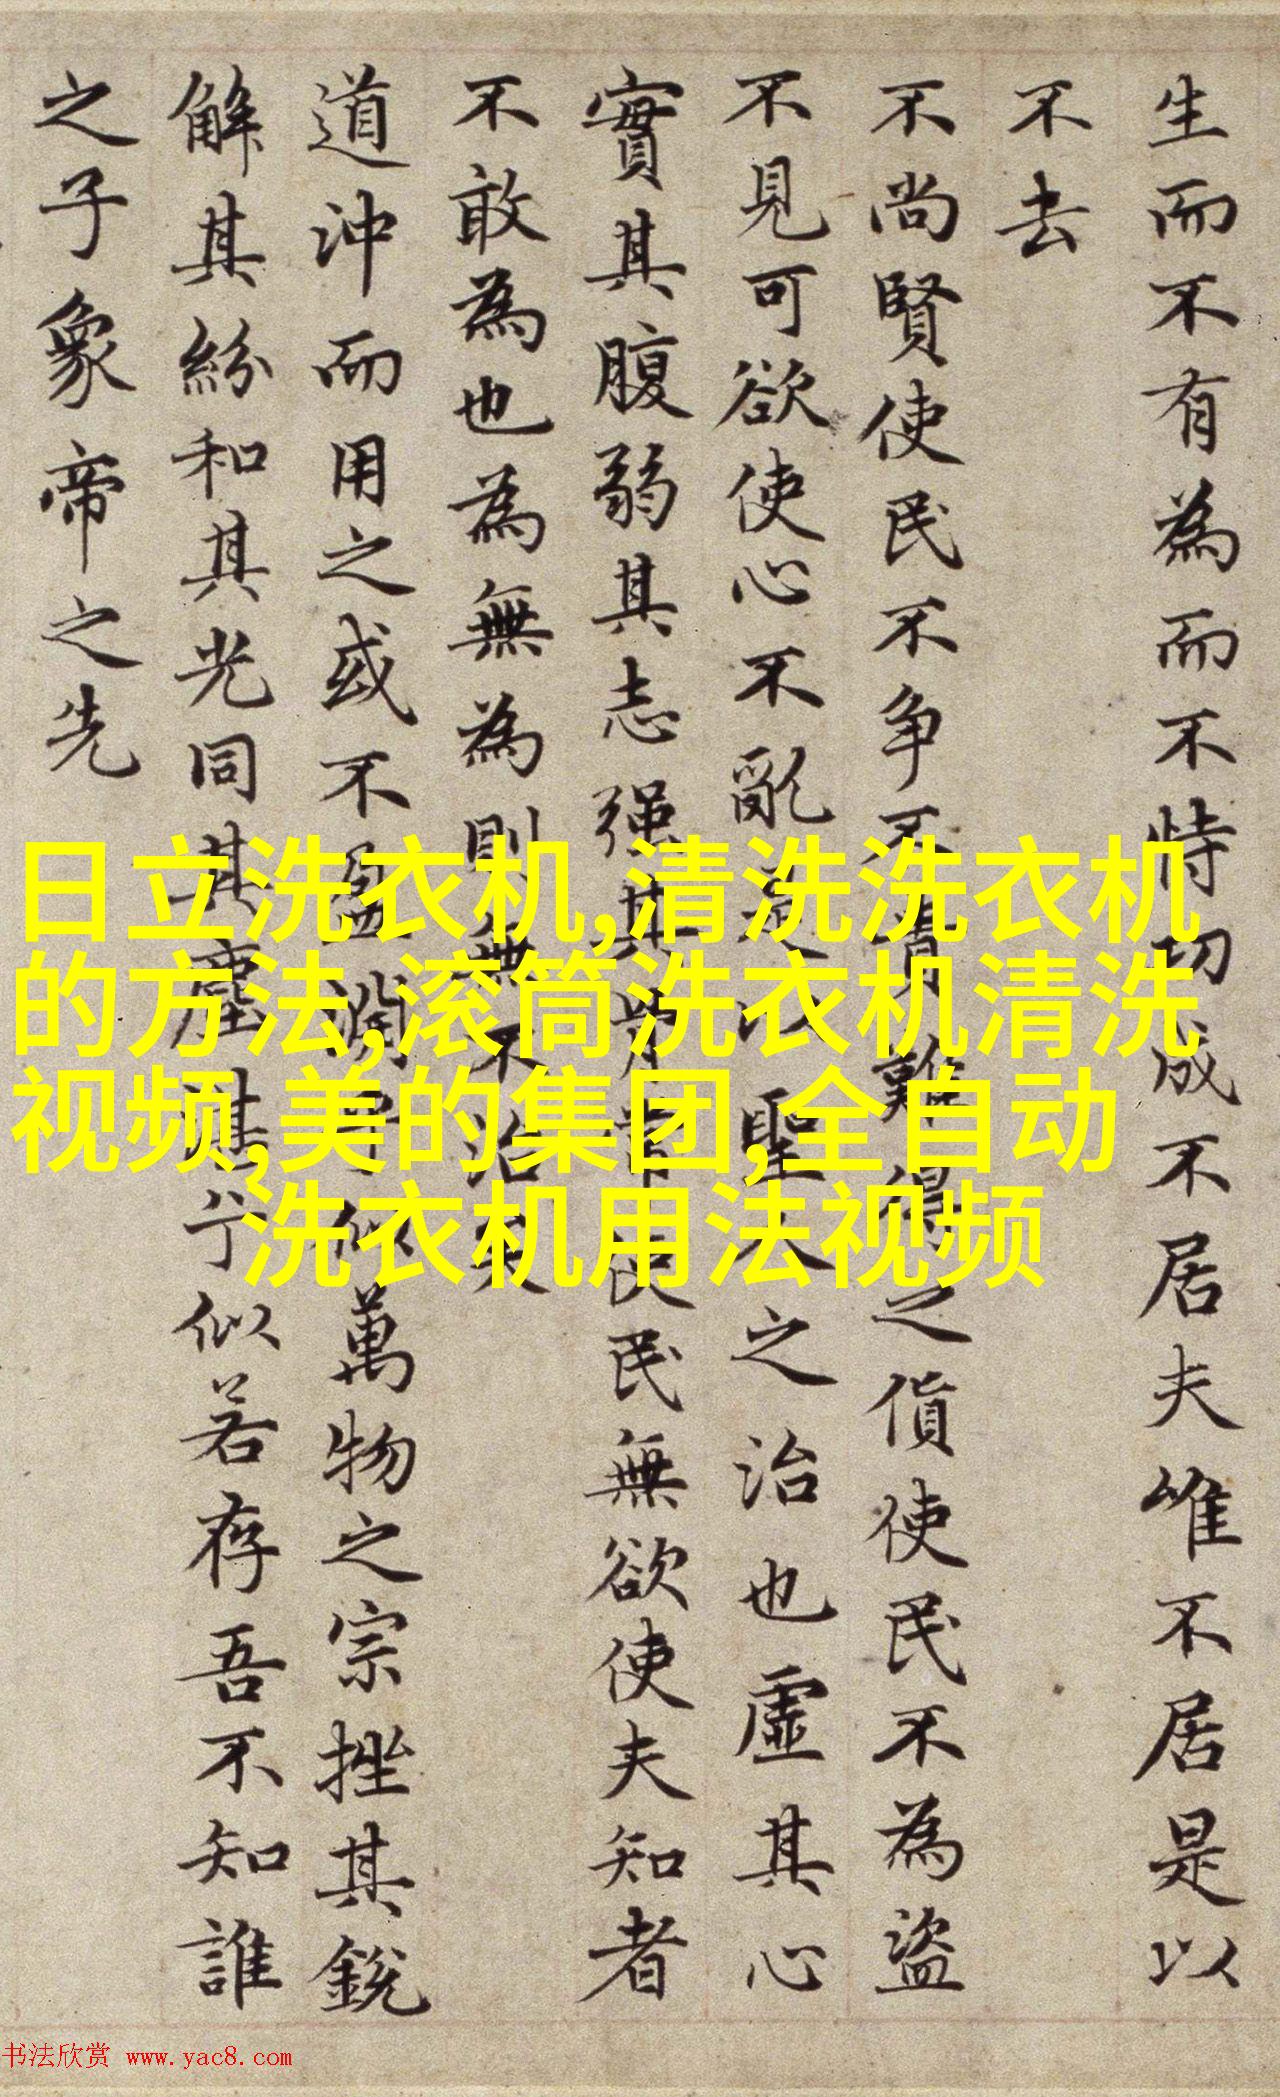 生而不有為而不恃功成不居夫唯不居是以
不去
不尚賢使民不争不貴難得之貨使民不為盜
不見可欲使心不亂是以聖人之治也虛其心
實其腹弱其志强其骨常使民無欲使夫知者
不敢為也為無為則無不治矣
道沖而用之或不盈淵乎似萬物之宗挫其銳
解其紛和其光同其塵湛兮似若存吾不知誰
之子象帝之先
日立洗衣机,清洗洗衣机
的方法,滚筒洗衣机清洗
视频,美的集团,全自动
洗衣机用法视频
书法欣赏 www.yac8.com